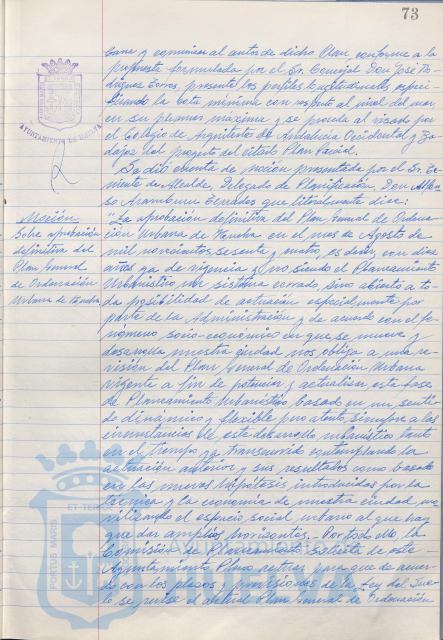 73
base y comunicar al autor de dicho Plan conforme a la
propuesta formulada por el Sr. Concejal Don José Ro-
dríguez Torres, presente los perfiles longitudinales especi-
ficando la cota mínima con respecto al nivel del mar
en su pleamar máxima y se proceda al visado por
el Colegio de Arquitectos de Andalucía Occidental y Ba-
dajoz del proyecto del citado Plan Parcial.
Se dió cuenta de moción presentada por el Sr. Te-
niente de Alcalde, Delegado de Planificación, Don Alfon-
so Aramburu Terrades que literalmente dice:
"La aprobación definitiva del Plan General de Ordena-
ción Urbana de Huelva en el mes de Agosto de
mil novecientos sesenta y cuatro, es decir, con diez
años ya de vigencia y no siendo el Planeamiento
Urbanístico un sistema cerrado, sino abierto a to-
da posibilidad de actuación especialmente por
parte de la Administración y de acuerdo con el fe-
nómeno socio-económico en que se mueve y
desarrolla nuestra ciudad nos obliga a una re-
visión del Plan General de Ordenación Urbana
vigente a fin de potenciar y actualizar esta base
de Planeamiento Urbanístico basado en un senti-
do dinámico y flexible pero atento, siempre a las
circunstancias de este desarrollo urbanístico tanto
en el tiempo ya transcurrido contemplando la
actuación anterior y sus resultados como basado
en las nuevas hipótesis introducidas por la
técnica y la economía de nuestra ciudad
el espacio social urbano al que hay
que dar amplios horizontes.- Por todo ello, la
Comisión de Planeamiento solicita de este
Ayuntamiento Pleno actúe para que de acuer-
do con los plazos y previsiones de la Ley del Sue-
lo se revise el actual Plan General de Ordenación
AYUNTAMIENTO DE HUELVA
Moción
sobre aprobación
definitiva del
Plan General
de Ordenación
Urbana de Huelva
PORTUS MARIS ET TERRAE